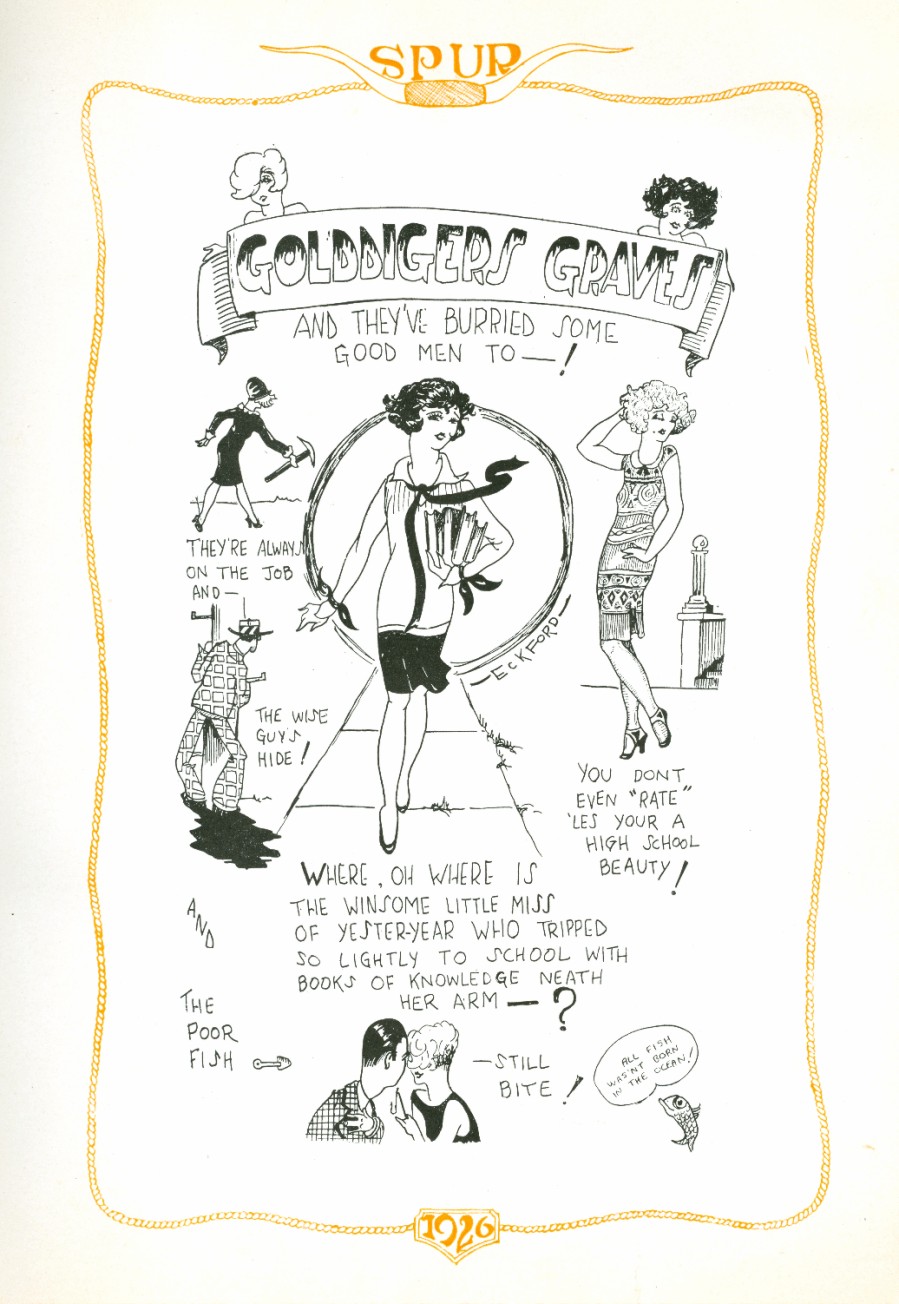 SPUR
GOLDDIGERS GRAVES
AND THEY'VE BURRIED SOME
GOOD MEN TO — !
THEY'RE ALWAYS
ON THE JOB
AND —
THE WISE
GUY'S
HIDE !
— ECKFORD —
YOU DONT
EVEN "RATE"
'LES YOUR A
HIGH SCHOOL
BEAUTY !
WHERE, OH WHERE IS
THE WINSOME LITTLE MISS
OF YESTER-YEAR WHO TRIPPED
SO LIGHTLY TO SCHOOL WITH
BOOKS OF KNOWLEDGE NEATH
HER ARM — ?
AND
THE
POOR
FISH
— STILL
BITE !
ALL FISH
WAS'NT BORN
IN THE OCEAN!
1926